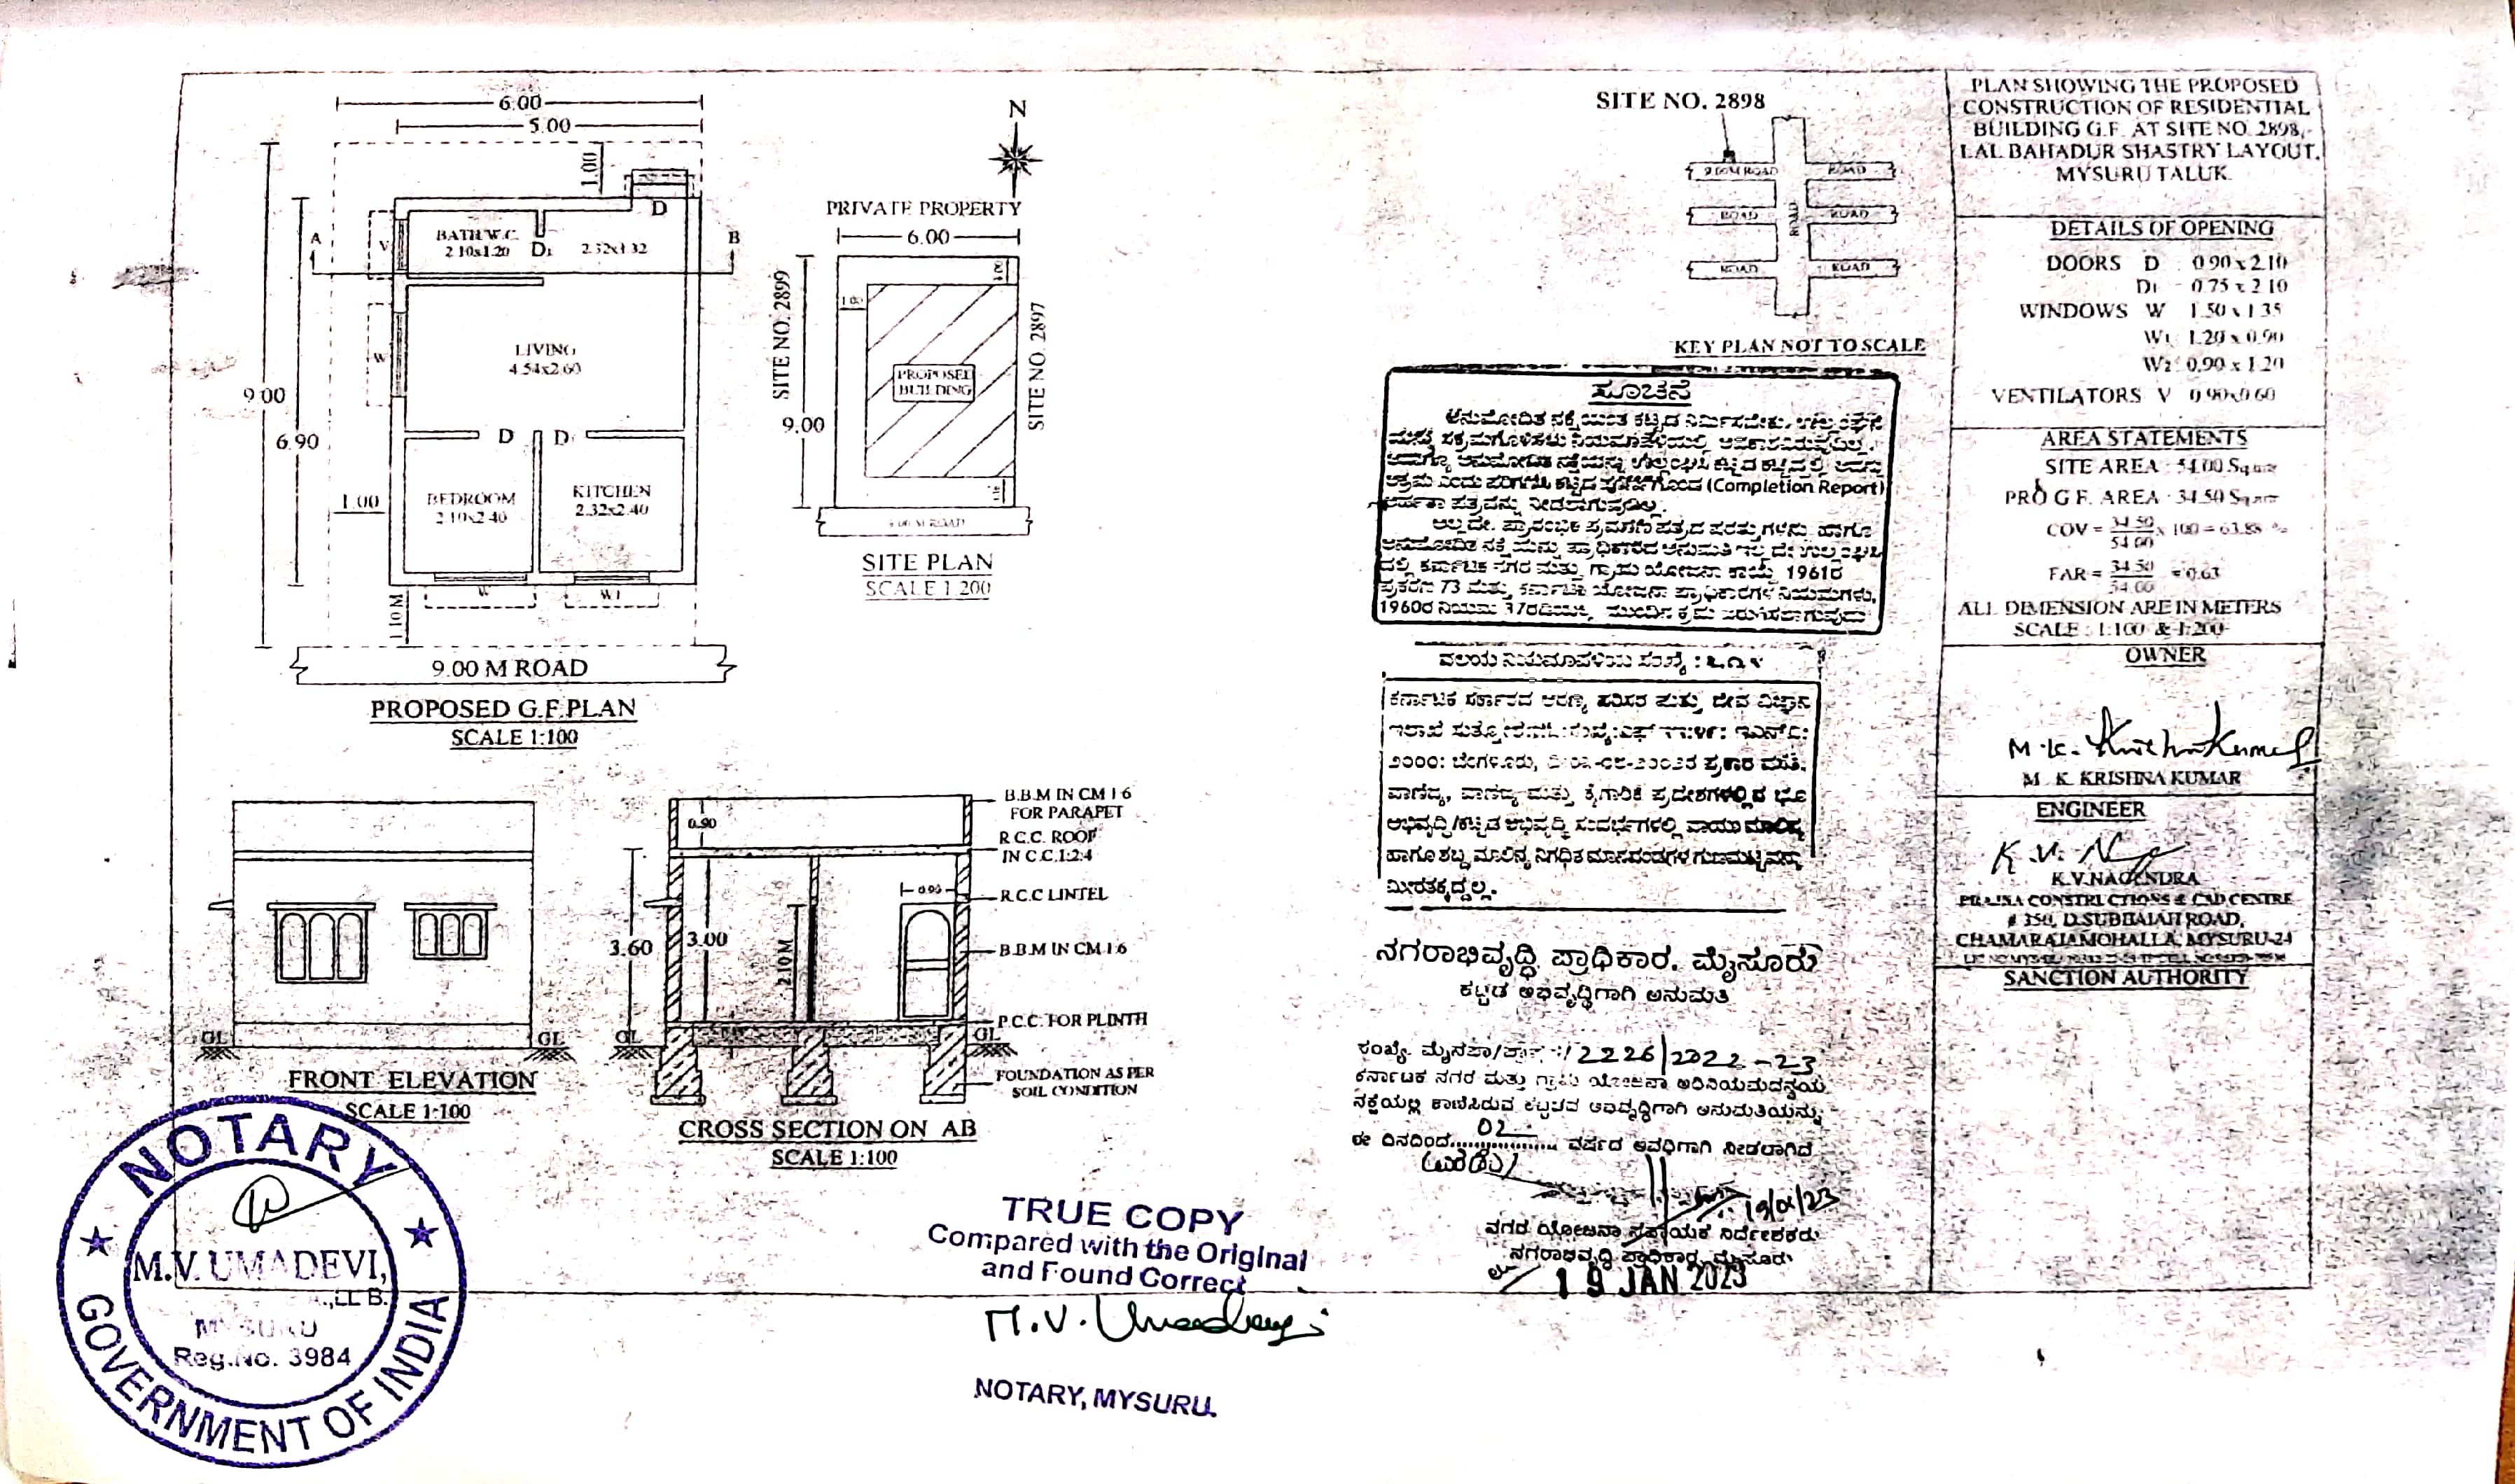 6.00
5.00
1.00
D
A
B
V
BATH/W.C.
2.10x1.20
D1
2.32x1.32
W
LIVING
4.54x2.60
9.00
6.90
D
D1
1.00
BEDROOM
2.10x2.40
KITCHEN
2.32x2.40
W
W1
1.10 M
9.00 M ROAD
PROPOSED G.F.PLAN
SCALE 1:100
N
PRIVATE PROPERTY
6.00
SITE NO. 2899
1.00
SITE NO. 2897
PROPOSED
BUILDING
9.00
9.00 M ROAD
SITE PLAN
SCALE 1:200
GL
GL
FRONT ELEVATION
SCALE 1:100
0.90
B.B.M IN CM 1:6
FOR PARAPET
R.C.C. ROOF
IN C.C.1:2:4
0.90
R.C.C LINTEL
3.60
3.00
2.10M
B.B.M IN CM 1:6
P.C.C. FOR PLINTH
GL
GL
FOUNDATION AS PER
SOIL CONDITION
CROSS SECTION ON AB
SCALE 1:100
NOTARY
M.V. UMADEVI,
LL B.
MYSURU
Reg.No. 3984
GOVERNMENT OF INDIA
TRUE COPY
Compared with the Original
and Found Correct
M.V. Umadevi
NOTARY, MYSURU.
SITE NO. 2898
9.00M ROAD
ROAD
ROAD
ROAD
ROAD
ROAD
ROAD
KEY PLAN NOT TO SCALE
ಸೂಚನೆ
ಅನುಮೋದಿತ ನಕ್ಷೆಯಂತೆ ಕಟ್ಟಡ ನಿರ್ಮಿಸಬೇಕು.
(Completion Report)
ಅರ್ಹತಾ ಪತ್ರವನ್ನು ನೀಡಲಾಗುವುದಿಲ್ಲ.
ಅಲ್ಲದೇ, ಪ್ರಾರಂಭಿಕ ಪ್ರಮಾಣ ಪತ್ರದ ಷರತ್ತುಗಳನು ಹಾಗೂ
ಕರ್ನಾಟಕ ನಗರ ಮತ್ತು ಗ್ರಾಮ ಯೋಜನಾ ಕಾಯ್ದೆ 1961ರ
ಪ್ರಕರಣ 73 ಮತ್ತು ಕರ್ನಾಟಕ ಯೋಜನಾ ಪ್ರಾಧಿಕಾರಗಳ ನಿಯಮಗಳು,
1960ರ ನಿಯಮ 37ರಡಿಯಲ್ಲಿ, ಮುಂದಿನ ಕ್ರಮ ಜರುಗಿಸಲಾಗುವುದು
ವಲಯ ನಿಯಮಾವಳಿಯ ಸಂಖ್ಯೆ :
ಕರ್ನಾಟಕ ಸರ್ಕಾರದ ಅರಣ್ಯ ಪರಿಸರ ಮತ್ತು ಜೀವ ವಿಜ್ಞಾನ
೨೦೦೦: ಬೆಂಗಳೂರು, ಪ್ರಕಾರ ವಸತಿ,
ವಾಣಿಜ್ಯ, ವಾಣಿಜ್ಯ ಮತ್ತು ಕೈಗಾರಿಕೆ ಪ್ರದೇಶಗಳಲ್ಲಿನ ಭೂ
ಅಭಿವೃದ್ಧಿ/ಕಟ್ಟಡ ಅಭಿವೃದ್ಧಿ ಸಂದರ್ಭಗಳಲ್ಲಿ ವಾಯು ಮಾಲಿನ್ಯ
ಹಾಗೂ ಶಬ್ದ ಮಾಲಿನ್ಯ ನಿಗಧಿತ ಮಾನದಂಡಗಳ ಗುಣಮಟ್ಟವನ್ನು
ಮೀರತಕ್ಕದ್ದಲ್ಲ.
ನಗರಾಭಿವೃದ್ಧಿ ಪ್ರಾಧಿಕಾರ, ಮೈಸೂರು
ಕಟ್ಟಡ ಅಭಿವೃದ್ಧಿಗಾಗಿ ಅನುಮತಿ
ಸಂಖ್ಯೆ: 2226/2022-23
ಕರ್ನಾಟಕ ನಗರ ಮತ್ತು ಗ್ರಾಮ ಯೋಜನಾ ಅಧಿನಿಯಮದನ್ವಯ
ನಕ್ಷೆಯಲ್ಲಿ ಕಾಣಿಸಿರುವ ಕಟ್ಟಡದ ಅಭಿವೃದ್ಧಿಗಾಗಿ ಅನುಮತಿಯನ್ನು
ಈ ದಿನದಿಂದ....02.... ವರ್ಷದ ಅವಧಿಗಾಗಿ ನೀಡಲಾಗಿದೆ
(ಎರಡು)
19/01/23
ನಗರ ಯೋಜನಾ ಸಹಾಯಕ ನಿರ್ದೇಶಕರು
ನಗರಾಭಿವೃದ್ಧಿ ಪ್ರಾಧಿಕಾರ, ಮೈಸೂರು
19 JAN 2023
PLAN SHOWING THE PROPOSED
CONSTRUCTION OF RESIDENTIAL
BUILDING G.F. AT SITE NO. 2898,
LAL BAHADUR SHASTRY LAYOUT,
MYSURU TALUK.
DETAILS OF OPENING
DOORS D 0.90 x 2.10
D1 - 0.75 x 2.10
WINDOWS W 1.50 x 1.35
W1 1.20 x 0.90
W2 0.90 x 1.20
VENTILATORS V 0.90x0.60
AREA STATEMENTS
SITE AREA : 54.00 Sq.mtr
PRO G.F. AREA : 34.50 Sq.mtr
COV = 34.50/54.00 x 100 = 63.88 %
FAR = 34.50/54.00 = 0.63
ALL DIMENSION ARE IN METERS
SCALE : 1:100 & 1:200
OWNER
M.K. Krishna Kumar
M. K. KRISHNA KUMAR
ENGINEER
K.V. N
K.V.NAGENDRA
CONSTRUCTIONS & CAD CENTRE
# 350, D.SUBBAIAH ROAD,
CHAMARAJAMOHALLA, MYSURU-24
SANCTION AUTHORITY